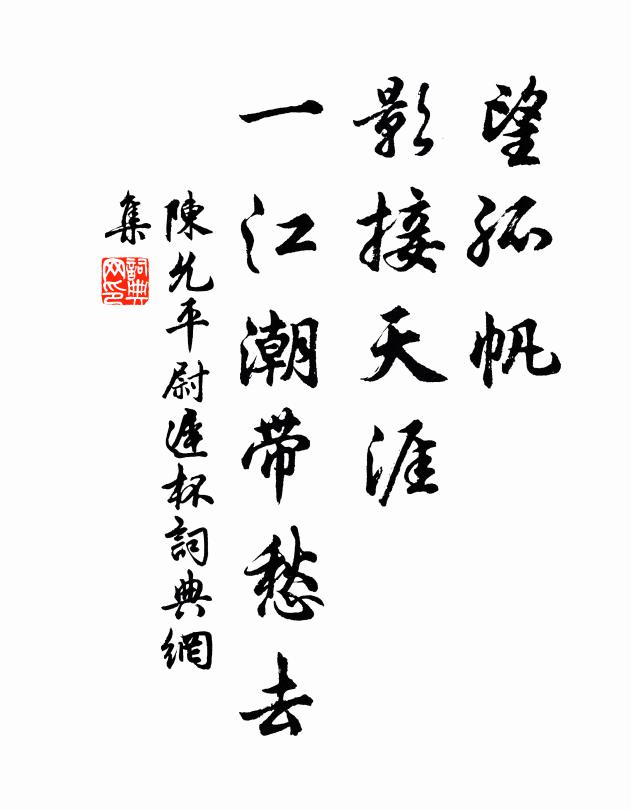 望孤帆
影接天涯
一江潮带愁去
陳允平尉遲杯詞典網
集
詞典
网印